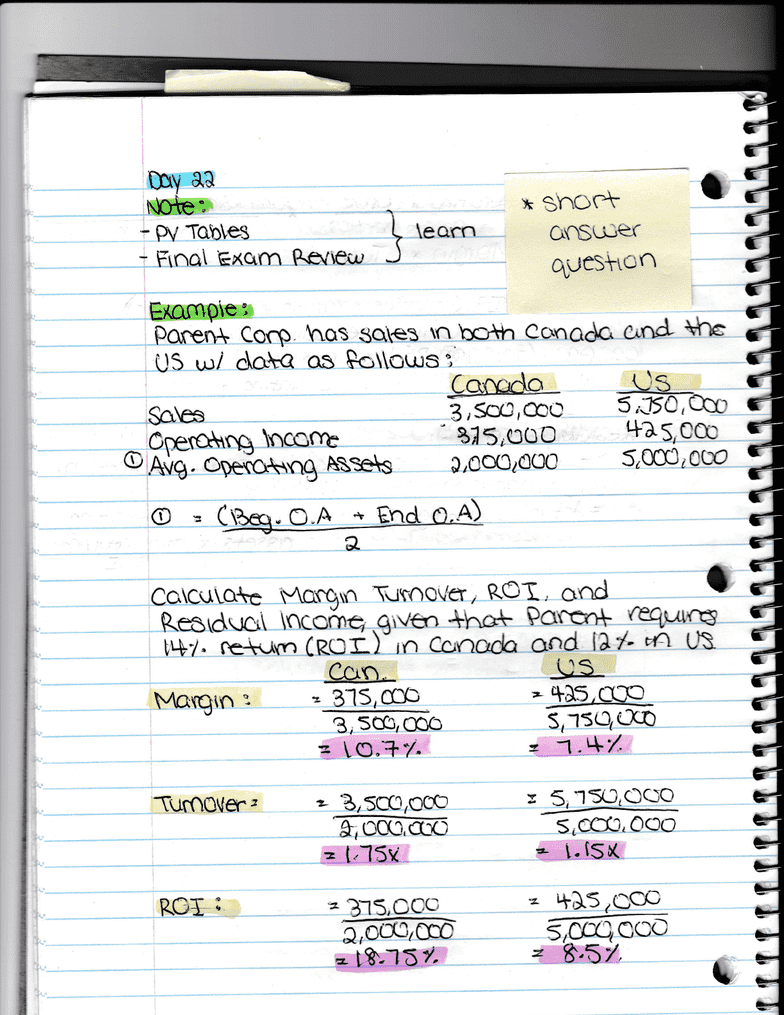 Day 22
Note:
- PV Tables
- Final Exam Review } learn
* short
answer
question
Example:
Parent Corp. has sales in both Canada and the
US w/ data as follows:
Canada US
Sales 3,500,000 5,750,000
Operating Income 375,000 425,000
① Avg. Operating Assets 2,000,000 5,000,000
① = (Beg. O.A + End O.A)
2
Calculate Margin Turnover, ROI, and
Residual Income, given that Parent requires
14% return (ROI) in Canada and 12% in US
Can. US
Margin: = 375,000 = 425,000
3,500,000 5,750,000
= 10.7% = 7.4%
Turnover: = 3,500,000 = 5,750,000
2,000,000 5,000,000
= 1.75x = 1.15x
ROI: = 375,000 = 425,000
2,000,000 5,000,000
= 18.75% = 8.5%